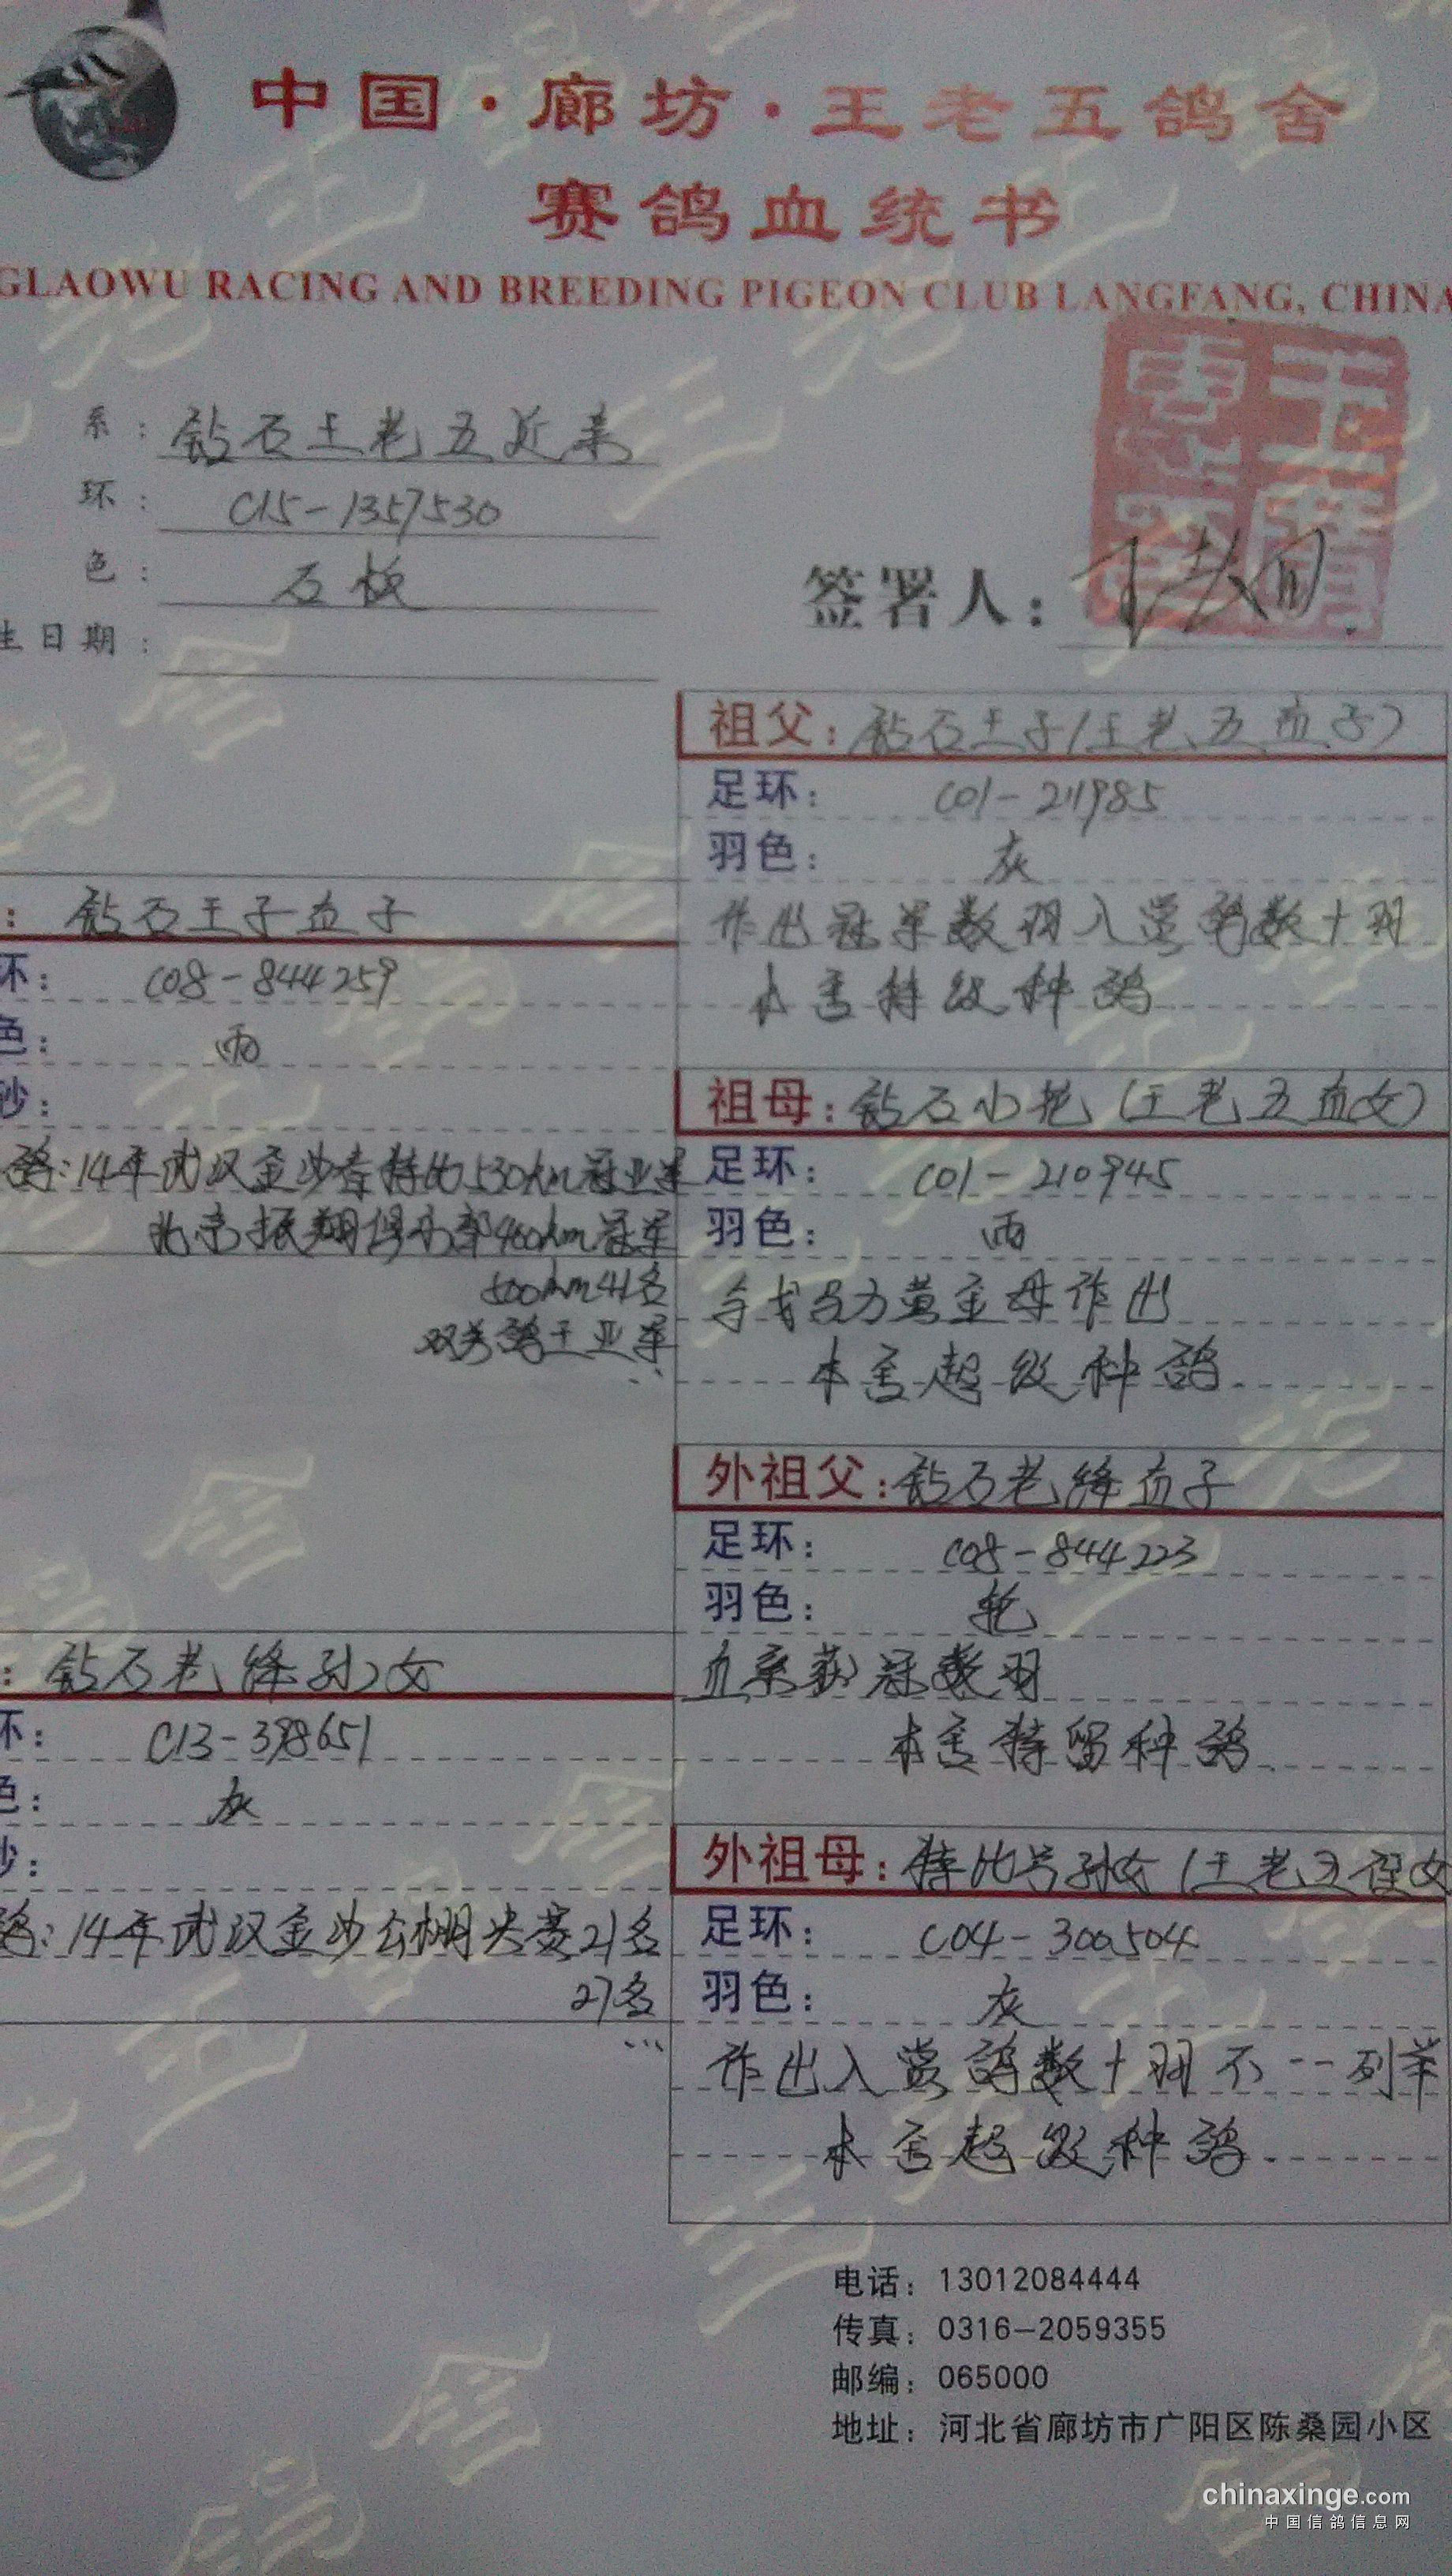 中国·廊坊·王老五鸽舍
赛鸽血统书
GLAOWU RACING AND BREEDING PIGEON CLUB LANGFANG, CHINA
系： 钻石王老五近亲
环： C15-1357530
色： 石板
生日期：
签署人：
祖父：钻石王子(王老五直子)
足环： C01-211985
羽色： 灰
作出冠军数羽入赏鸽数十羽
本舍特级种鸽
：钻石王子直子
环： C08-844259
色： 雨
砂：
鸽：14年武汉金沙春特比530km冠亚军
北京振翔俱乐部460km冠军
500km41名
双关鸽王亚军
祖母：钻石小轮(王老五直女)
足环： C01-210945
羽色： 雨
与戈马力黄金母作出
本舍超级种鸽
外祖父：钻石老绛直子
足环： C08-844223
羽色： 轮
血系获冠数羽
本舍特留种鸽
：钻石老绛孙女
环： C13-398651
色： 灰
砂：
鸽：14年武汉金沙公棚决赛21名
27名
...
外祖母：特比号孙女(王老五侄女
足环： C04-300504
羽色： 灰
作出入赏鸽数十羽不一一列举
本舍超级种鸽
电话：13012084444
传真：0316-2059355
邮编：065000
地址：河北省廊坊市广阳区陈桑园小区
chinaxinge.com
中国信鸽信息网